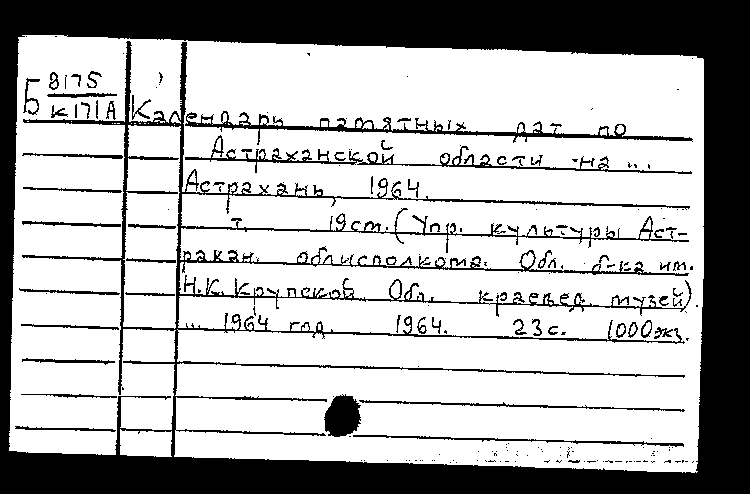 Б 8175
К171А Календарь памятных дат по
Астраханской области на ...
Астрахань, 1964.
т. 19см. (Упр. культуры Аст-
рахан. облисполкома. Обл. б-ка им.
Н.К. Крупской. Обл. краевед. музей).
... 1964 год. 1964. 23с. 1000экз.